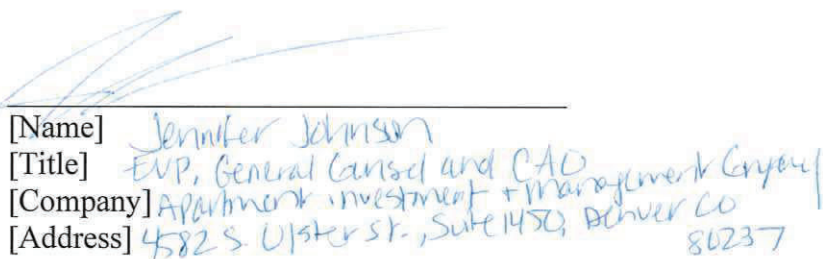 [Name] Jennifer Johnson
[Title] EVP, General Counsel and CAO
[Company] Apartment investment + management Company
[Address] 4582 S. Ulster St., Suite 1450, Denver CO
80237